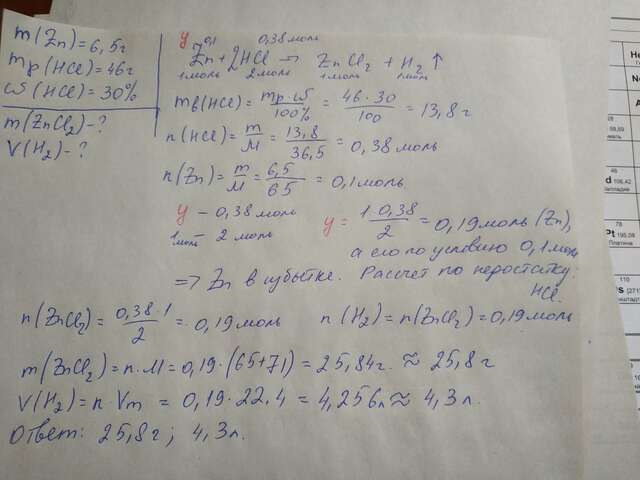 m(Zn)=6,5г
mр(HCl)=46г
ω(HCl)=30%
m(ZnCl₂)-?
V(H₂)-?
y 0,1 0,38моль
Zn+2HCl → ZnCl₂ + H₂↑
1моль 2моль 1моль 1моль
mв(HCl)= mр·ω/100% = 46·30/100 = 13,8г
n(HCl)= m/M = 13,8/36,5 = 0,38моль
n(Zn)= m/M = 6,5/65 = 0,1моль
y - 0,38моль
1моль - 2моль
y= 1·0,38/2 = 0,19моль(Zn),
а его по условию 0,1моль
=> Zn в избытке. Рассчет по недостатку:
HCl.
n(ZnCl₂)= 0,38·1/2 = 0,19моль n(H₂)=n(ZnCl₂)=0,19моль
m(ZnCl₂)=n·M=0,19·(65+71)=25,84г. ≈ 25,8г
V(H₂)=n·Vm = 0,19·22,4 = 4,256л ≈ 4,3л.
Ответ: 25,8г; 4,3л.
Pt 195,08
Платина